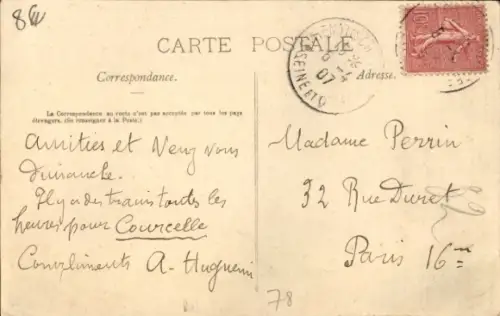 CARTE POSTALE
Correspondance.
Adresse.
La Correspondance au recto n'est pas acceptée par tous les pays
étrangers. (Se renseigner à la Poste.)
Amitiés et Venez vous
Dimanche.
Il y a des trains toutes les
heures pour Courcelle
Compliments A. Huguenin
Madame Perrin
32 Rue Duret
Paris 16me
SEINE ET O
07
10
78